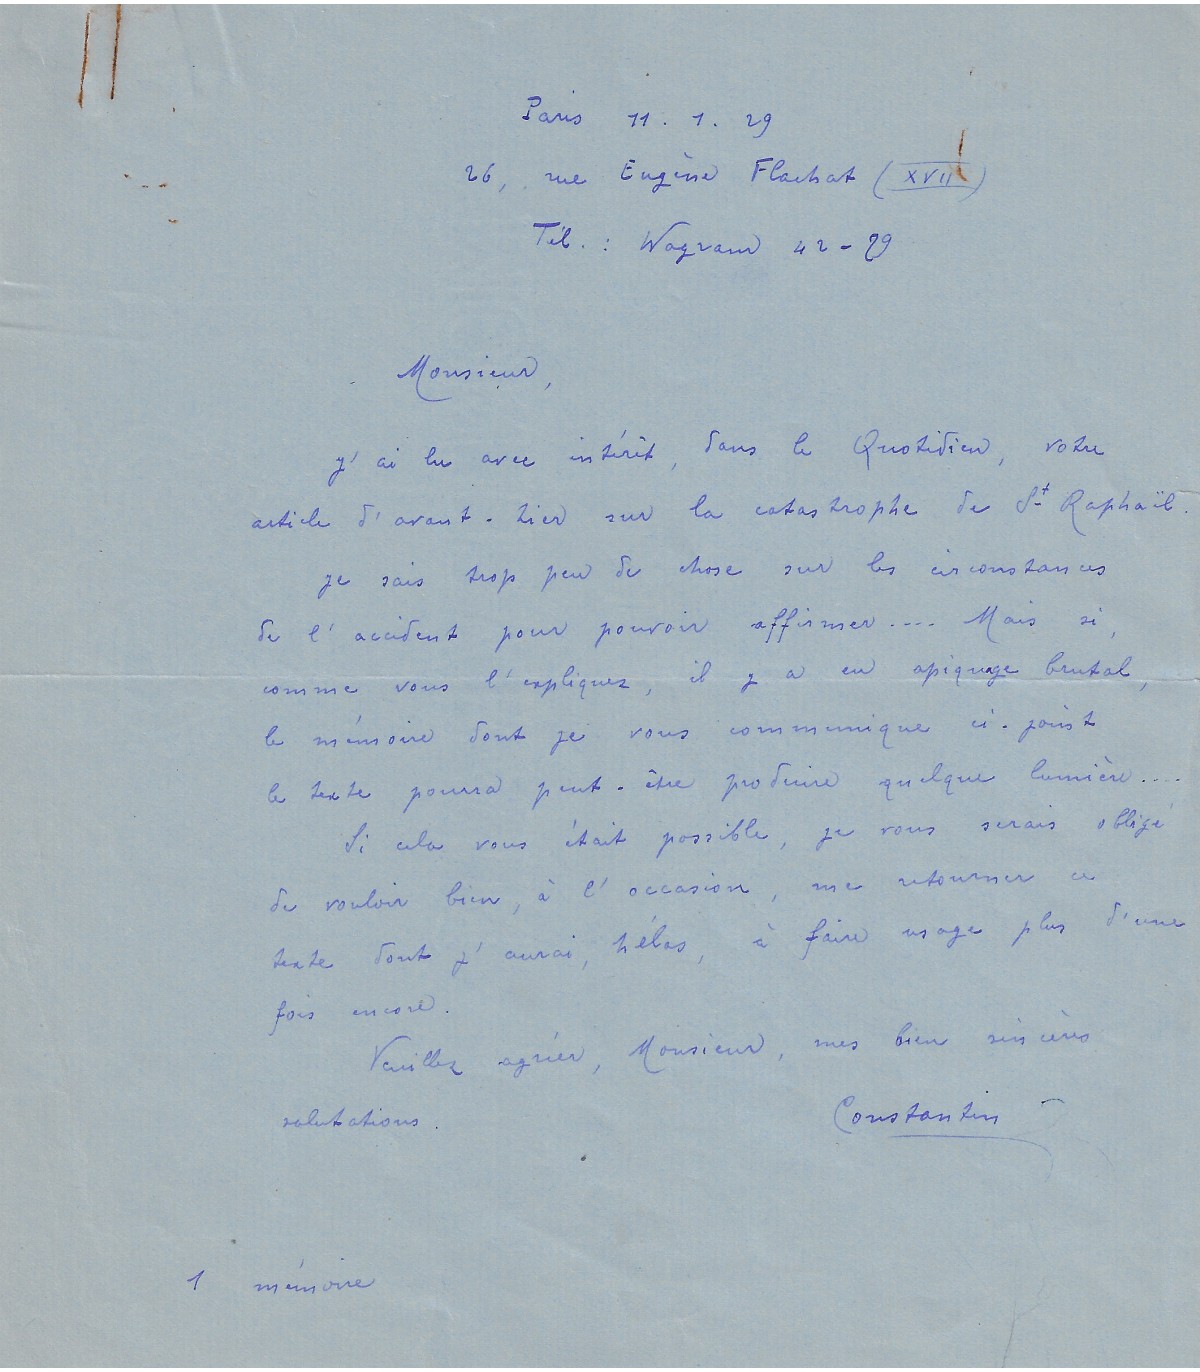 Paris 11. 1. 29
26, rue Eugène Flachat (XVII)
Tél. : Wagram 42-29
Monsieur,
J'ai lu avec intérêt, dans le Quotidien, votre
article d'avant-hier sur la catastrophe de St Raphaël.
Je sais trop peu de chose sur les circonstances
de l'accident pour pouvoir affirmer.... Mais si,
comme vous l'expliquez, il y a eu apiquage brutal,
le mémoire dont je vous communique ci-joint
le texte pourra peut-être produire quelque lumière....
Si cela vous était possible, je vous serais obligé
de vouloir bien, à l'occasion, me retourner ce
texte dont j'aurai, hélas, à faire usage plus d'une
fois encore.
Veuillez agréer, Monsieur, mes bien sincères
salutations.
Constantin
1 mémoire